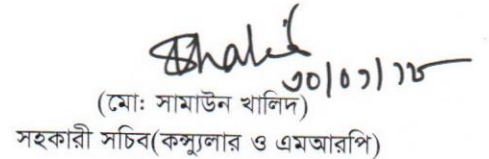 Khalid
(মো: সামাউন খালিদ)
সহকারী সচিব(কন্স্যুলার ও এমআরপি)